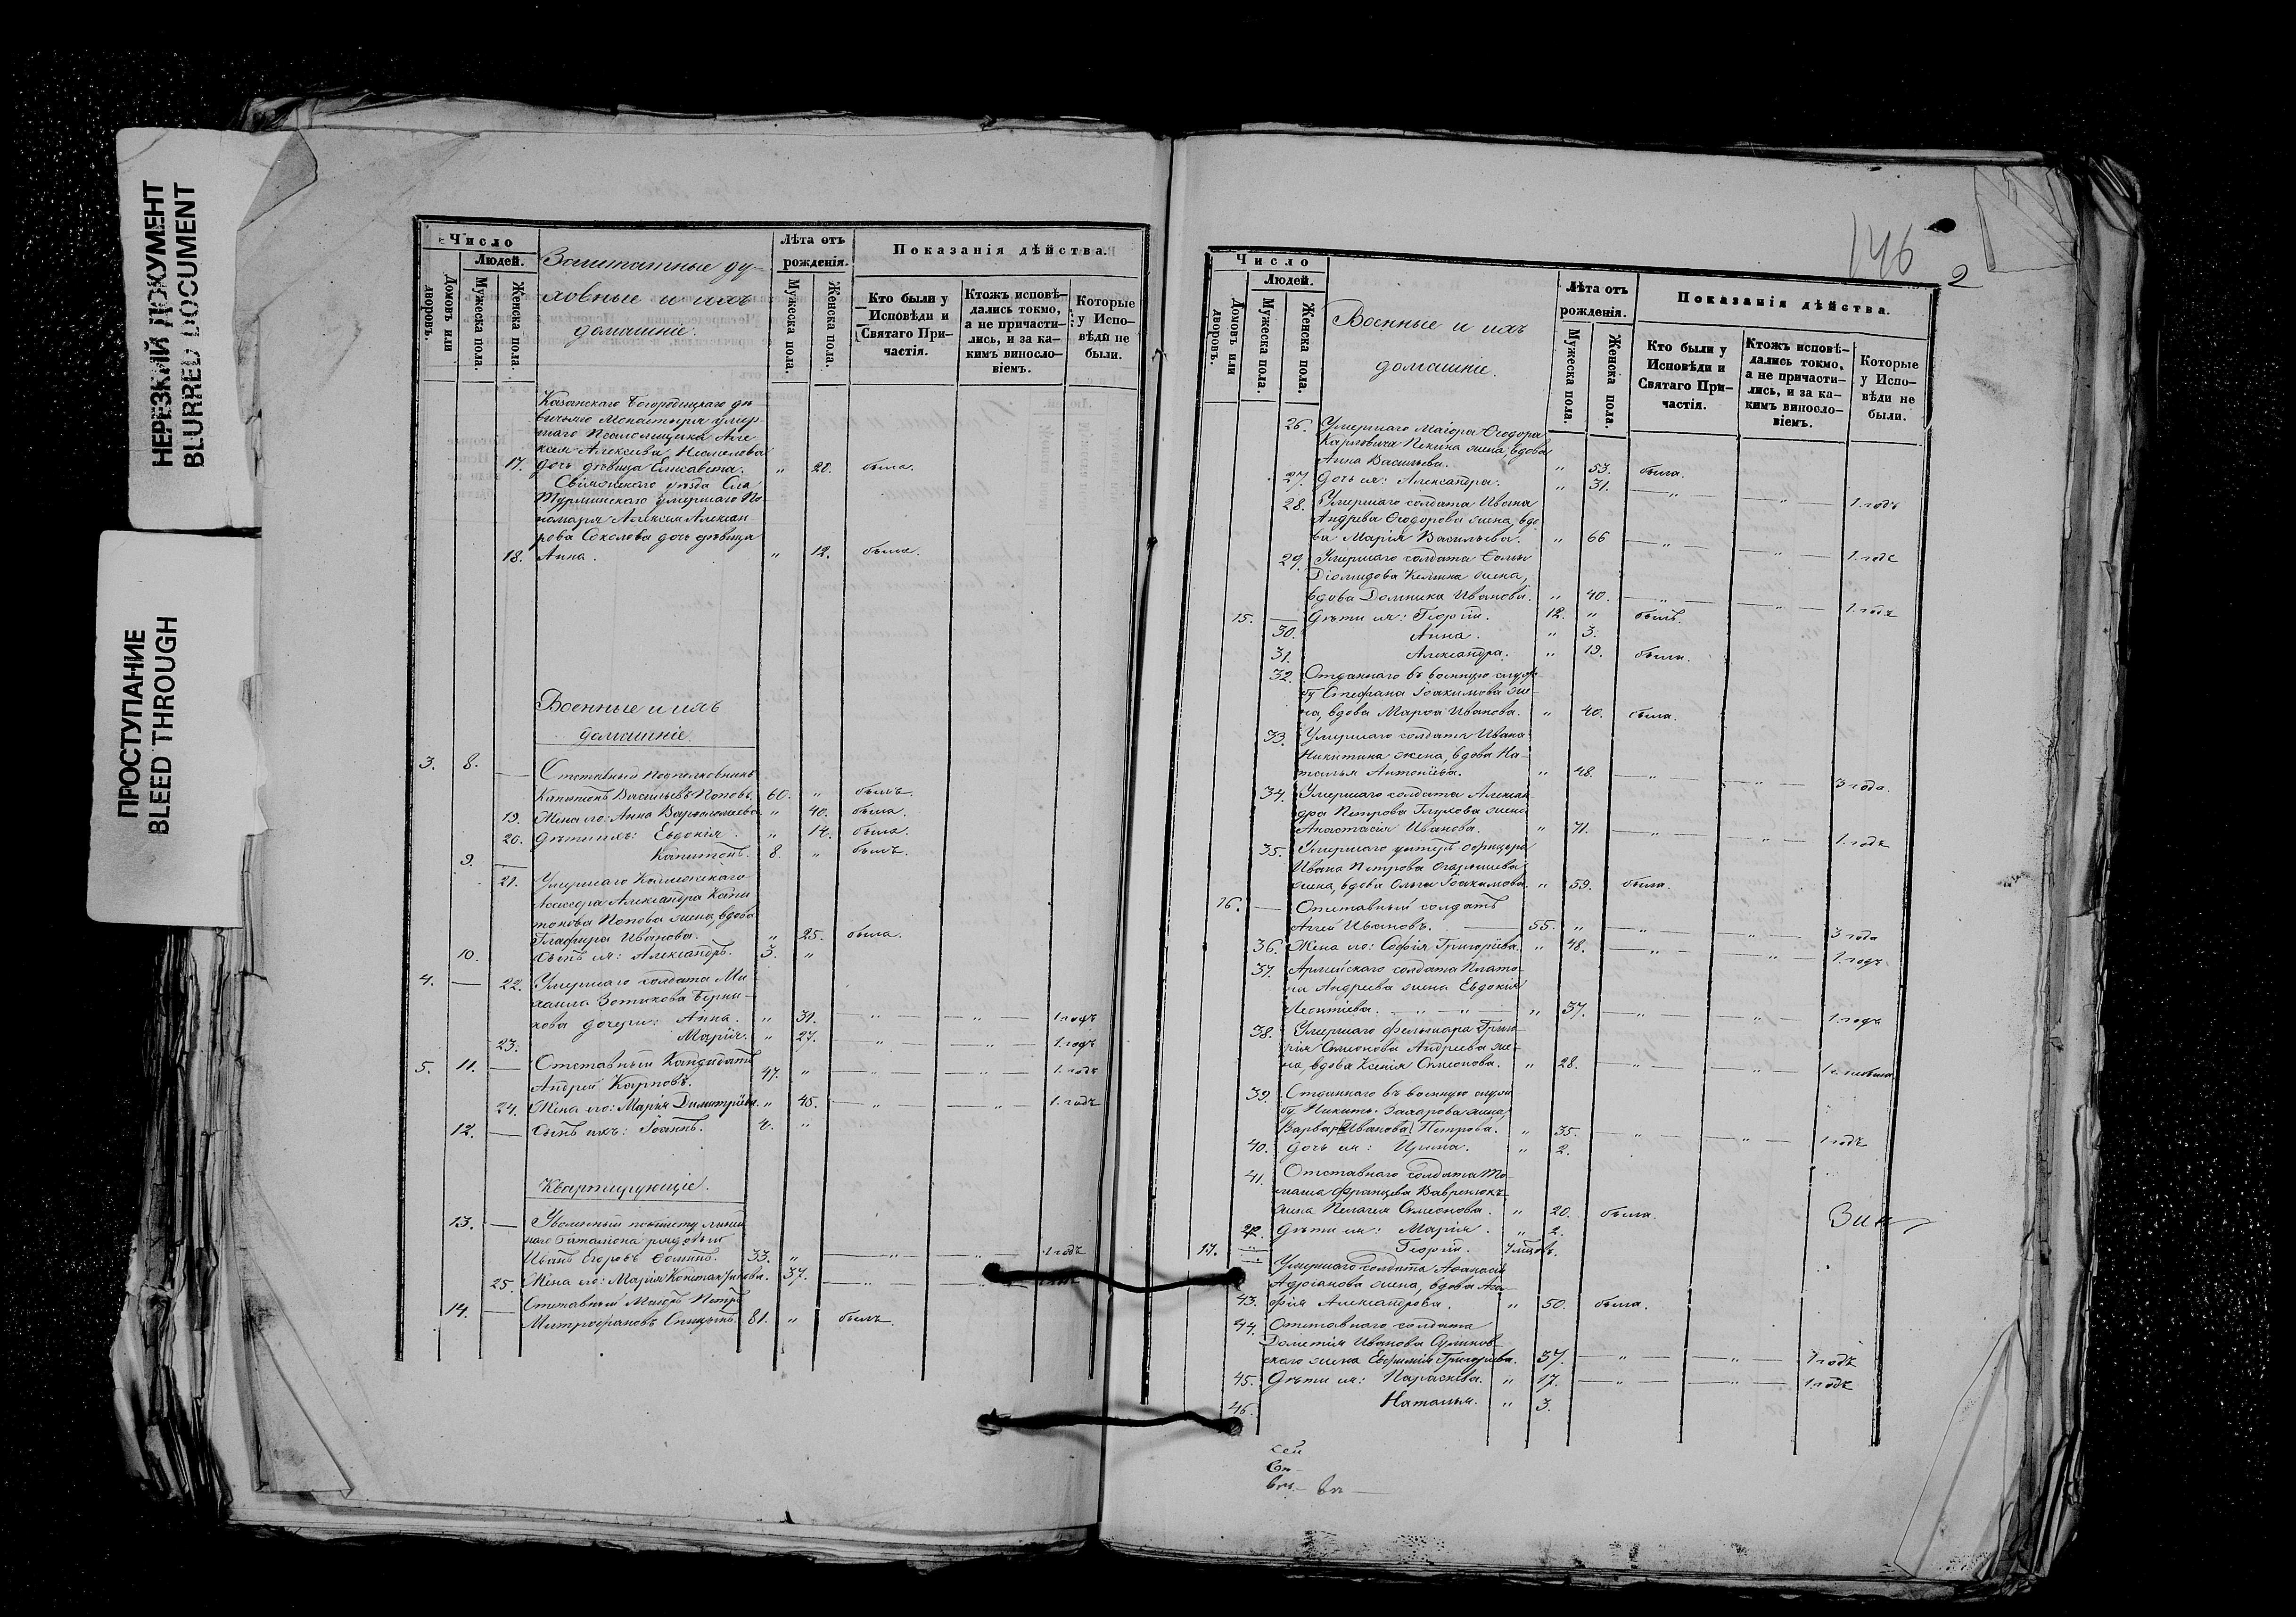 НЕРЕЗКИЙ ДОКУМЕНТ
BLURRED DOCUMENT
ПРОСТУПАНИЕ
BLEED THROUGH
Число
Людей.
Домовъ или дворовъ.
Мужеска пола.
Женска пола.
Заштатные ду-
ховные и ихъ
домашніе.
Лѣта отъ рожденія.
Мужеска пола.
Женска пола.
Показанія дѣйства.
Кто были у Исповѣди и Святаго При-частія.
Ктожъ исповѣ-дались токмо, а не причасти-лись, и за ка-кимъ виносло-віемъ.
Которые у Испо-вѣди не были.
Казанскаго Богородицкаго дѣ
вичьяго Монастыря умер
шаго Псаломщика Але
ксѣя Алексѣева
17. дочь дѣвица Елисавета. " 20. была.
Свіяжскаго уѣзда Села
умершаго По
номаря Алексѣя Алексан
рова Соколова дочь дѣвица
18. Анна. " 12. была.
Военные и ихъ
домашніе.
3. 8. — Отставный Подполковникъ
Капитонъ Васильевъ Поповъ. 60. " былъ.
19. Жена его: Анна Варѳоломеева. " 40. была.
20. Дѣти ихъ: Евдокія. " 14. была.
9. — Капитонъ. 8. " былъ.
21. Умершаго Коллежскаго
Ассесора Александра Капи
тонова Попова жена, вдова
Глафира Иванова. " 25. была.
10. Сынъ ея: Александръ. 3. "
4. — 22. Умершаго солдата Ми
хаила Зотикова
кова дочери: Анна. " 31. — " — — " — 1. годъ
23. Марія. " 27. — " — — " — 1. годъ
5. 11. — Отставный Кандидатъ
Андрей Карповъ. 47. " — " — — " — 1. годъ
24. Жена его: Марія Димитріева. " 45. — " — — " — 1. годъ
12. — Сынъ ихъ: Іоаннъ. 4. "
Квартирующіе.
13. — Уволенный
наго баталіона рядовый
Иванъ Егоровъ 33. " — " — — " — 1 годъ
25. Жена его: Марія Константинова. 37. — " — — " —
14. — Отставный Маіоръ Петръ
Митрофановъ Спицынъ. 81. " былъ.
146
2
Число
Людей.
Домовъ или дворовъ.
Мужеска пола.
Женска пола.
Военные и ихъ
домашніе.
Лѣта отъ рожденія.
Мужеска пола.
Женска пола.
Показанія дѣйства.
Кто были у Исповѣди и Святаго При-частія.
Ктожъ исповѣ-дались токмо, а не причасти-лись, и за ка-кимъ виносло-віемъ.
Которые у Испо-вѣди не были.
26. Умершаго Маіора Ѳеодора
Карловича жена, вдова
Анна Васильева. " 53. была.
27. Дочь ея: Александра. " 31. — " — — " — 1. годъ
28. Умершаго солдата Ивана
Андреева Ѳеодорова жена, вдо
ва Марія Васильева. " 66 — " — — " — 1. годъ
29. Умершаго солдата
Діомидова жена,
вдова Домника Иванова. " 40. — " — — " — 1. годъ
15. — Дѣти ея: Георгій. 12. " былъ.
30. Анна. " 3.
31. Александра. " 19. была.
32. Отданнаго въ военную служ
бу Стефана Іоакимова же
на, вдова Марѳа Иванова. " 40. была.
33. Умершаго солдата Ивана
Никитина жена, вдова На
талья Антоніева. " 48. — " — — " — 3 года.
34. Умершаго солдата Алексан
дра Петрова Глухова жена
Анастасія Иванова. " 71. — " — — " — 1. годъ
35. Умершаго унтеръ офицера
Ивана Петрова
жена, вдова Ольга Іоакимова. " 59. была.
16. — Отставный солдатъ
Аггей Ивановъ. 55. " — " — — " — 3 года
36. Жена его: Софія Григоріева. " 48. — " — — " — 1. годъ.
37. Армейскаго солдата Плато-
на Андреева жена Евдокія
Леонтіева. — " — " — " 37. — " — — " — 1. годъ
38. Умершаго фельдшера Григо
рія Симеонова Андреева же-
на, вдова Ксенія Симеонова. " 28. — " — — " —
39. Отданнаго въ военную служ
бу Никиты Захарова жена
Варвара Иванова Петрова. " 35. — " — — " — 1 годъ
40. Дочь ея: Ирина. " 2.
41. Отставнаго солдата То-
маша Францева
жена Пелагія Симеонова. " 20. была.
42. Дѣти ея: Марія. " 2.
17. — Георгій.
Умершаго солдата Аѳанасія
Адріанова жена, вдова Ага
43. фія Александрова. " 50. была.
44. Отставнаго солдата
Дометія Иванова
скаго жена Евфимія Григорьева. 37. — " — — " — 1 годъ
45. Дѣти ея: Параскева. " 17. — " — — " — 1 годъ
46. Наталья. " 3.